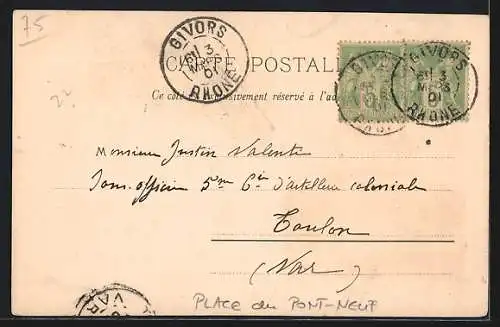 75
GIVORS
3
MARS
01
RHONE
CARTE POSTALE
GIVORS
RHONE
GIVORS
3
MARS
01
RHONE
Ce côté exclusivement réservé à l'ad
22
Monsieur Justin Valente
Sous-officier 5me Cie d'artillerie coloniale
Toulon
(Var)
VAR
PLACE du PONT-NEUF